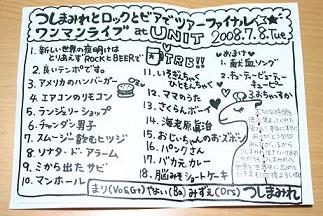 つしまみれとロックとビアでツアーファイナル☆★
ワンマンライブ at UNIT 2008.7.8.Tue
1. 新しい世界の夜明けは
とりあえずROCKとBEERで
2. 良いテンポです。
3. アメリカのハンバーガー
4. エアコンのリモコン
5. ランジェリーショップ
6. チャンダン男子
7. スムージー飲むヒッジ
8. ソナタ・ド・アラーム
9. ミから出たサビ
10. マンホール
でTRB!!
11. いろぎんちゃく
ひともんちゃく
12. ママのうた
13. さくらんボーイ
14. 海老原眞治
15. おじいちゃんのおズボン
16. パンクさん
17. バカ元カレー
18. 脳みそショートケーキ
♥おまけ♥
1. 献血ソング
2. キューティービューティー
キューピー
3. おちゃっすか
まり(Vo&Gt) やよい(Ba) みずえ(Drs) つしまみれ